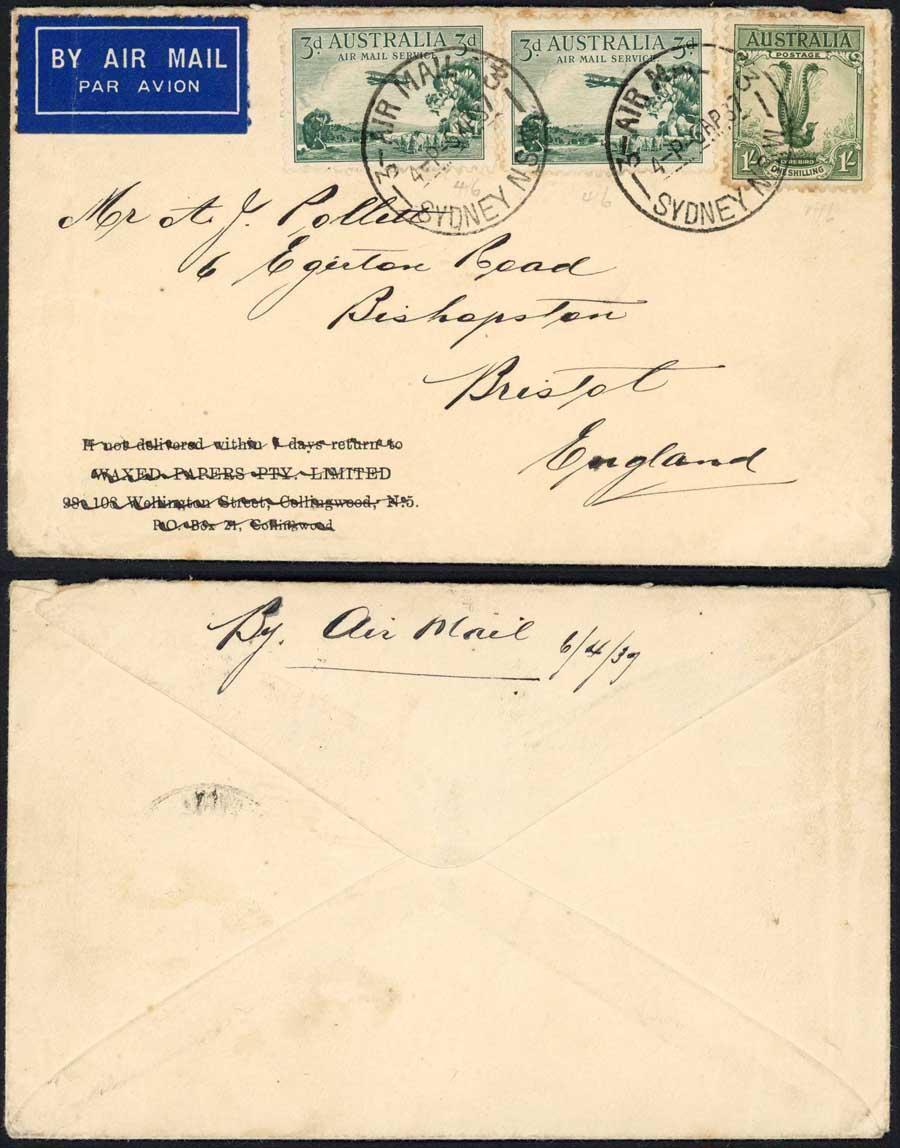 BY AIR MAIL
PAR AVION
3d AUSTRALIA 3d
AIR MAIL SERVICE
3d AUSTRALIA 3d
AIR MAIL SERVICE
AUSTRALIA
POSTAGE
LYREBIRD
1/- ONE SHILLING 1/-
3 - AIR MAIL - 3
SYDNEY N.S.W
3 - AIR MAIL - 3
SYDNEY N.S.W
46
46
Mr A. J. Pollett
6 Egerton Road
Bishopston
Bristol
England
If not delivered within 7 days return to
WAXED PAPERS PTY. LIMITED
98-108 Wellington Street, Collingwood, N.5.
P.O. Box 21, Collingwood
By. Air Mail 6/4/37